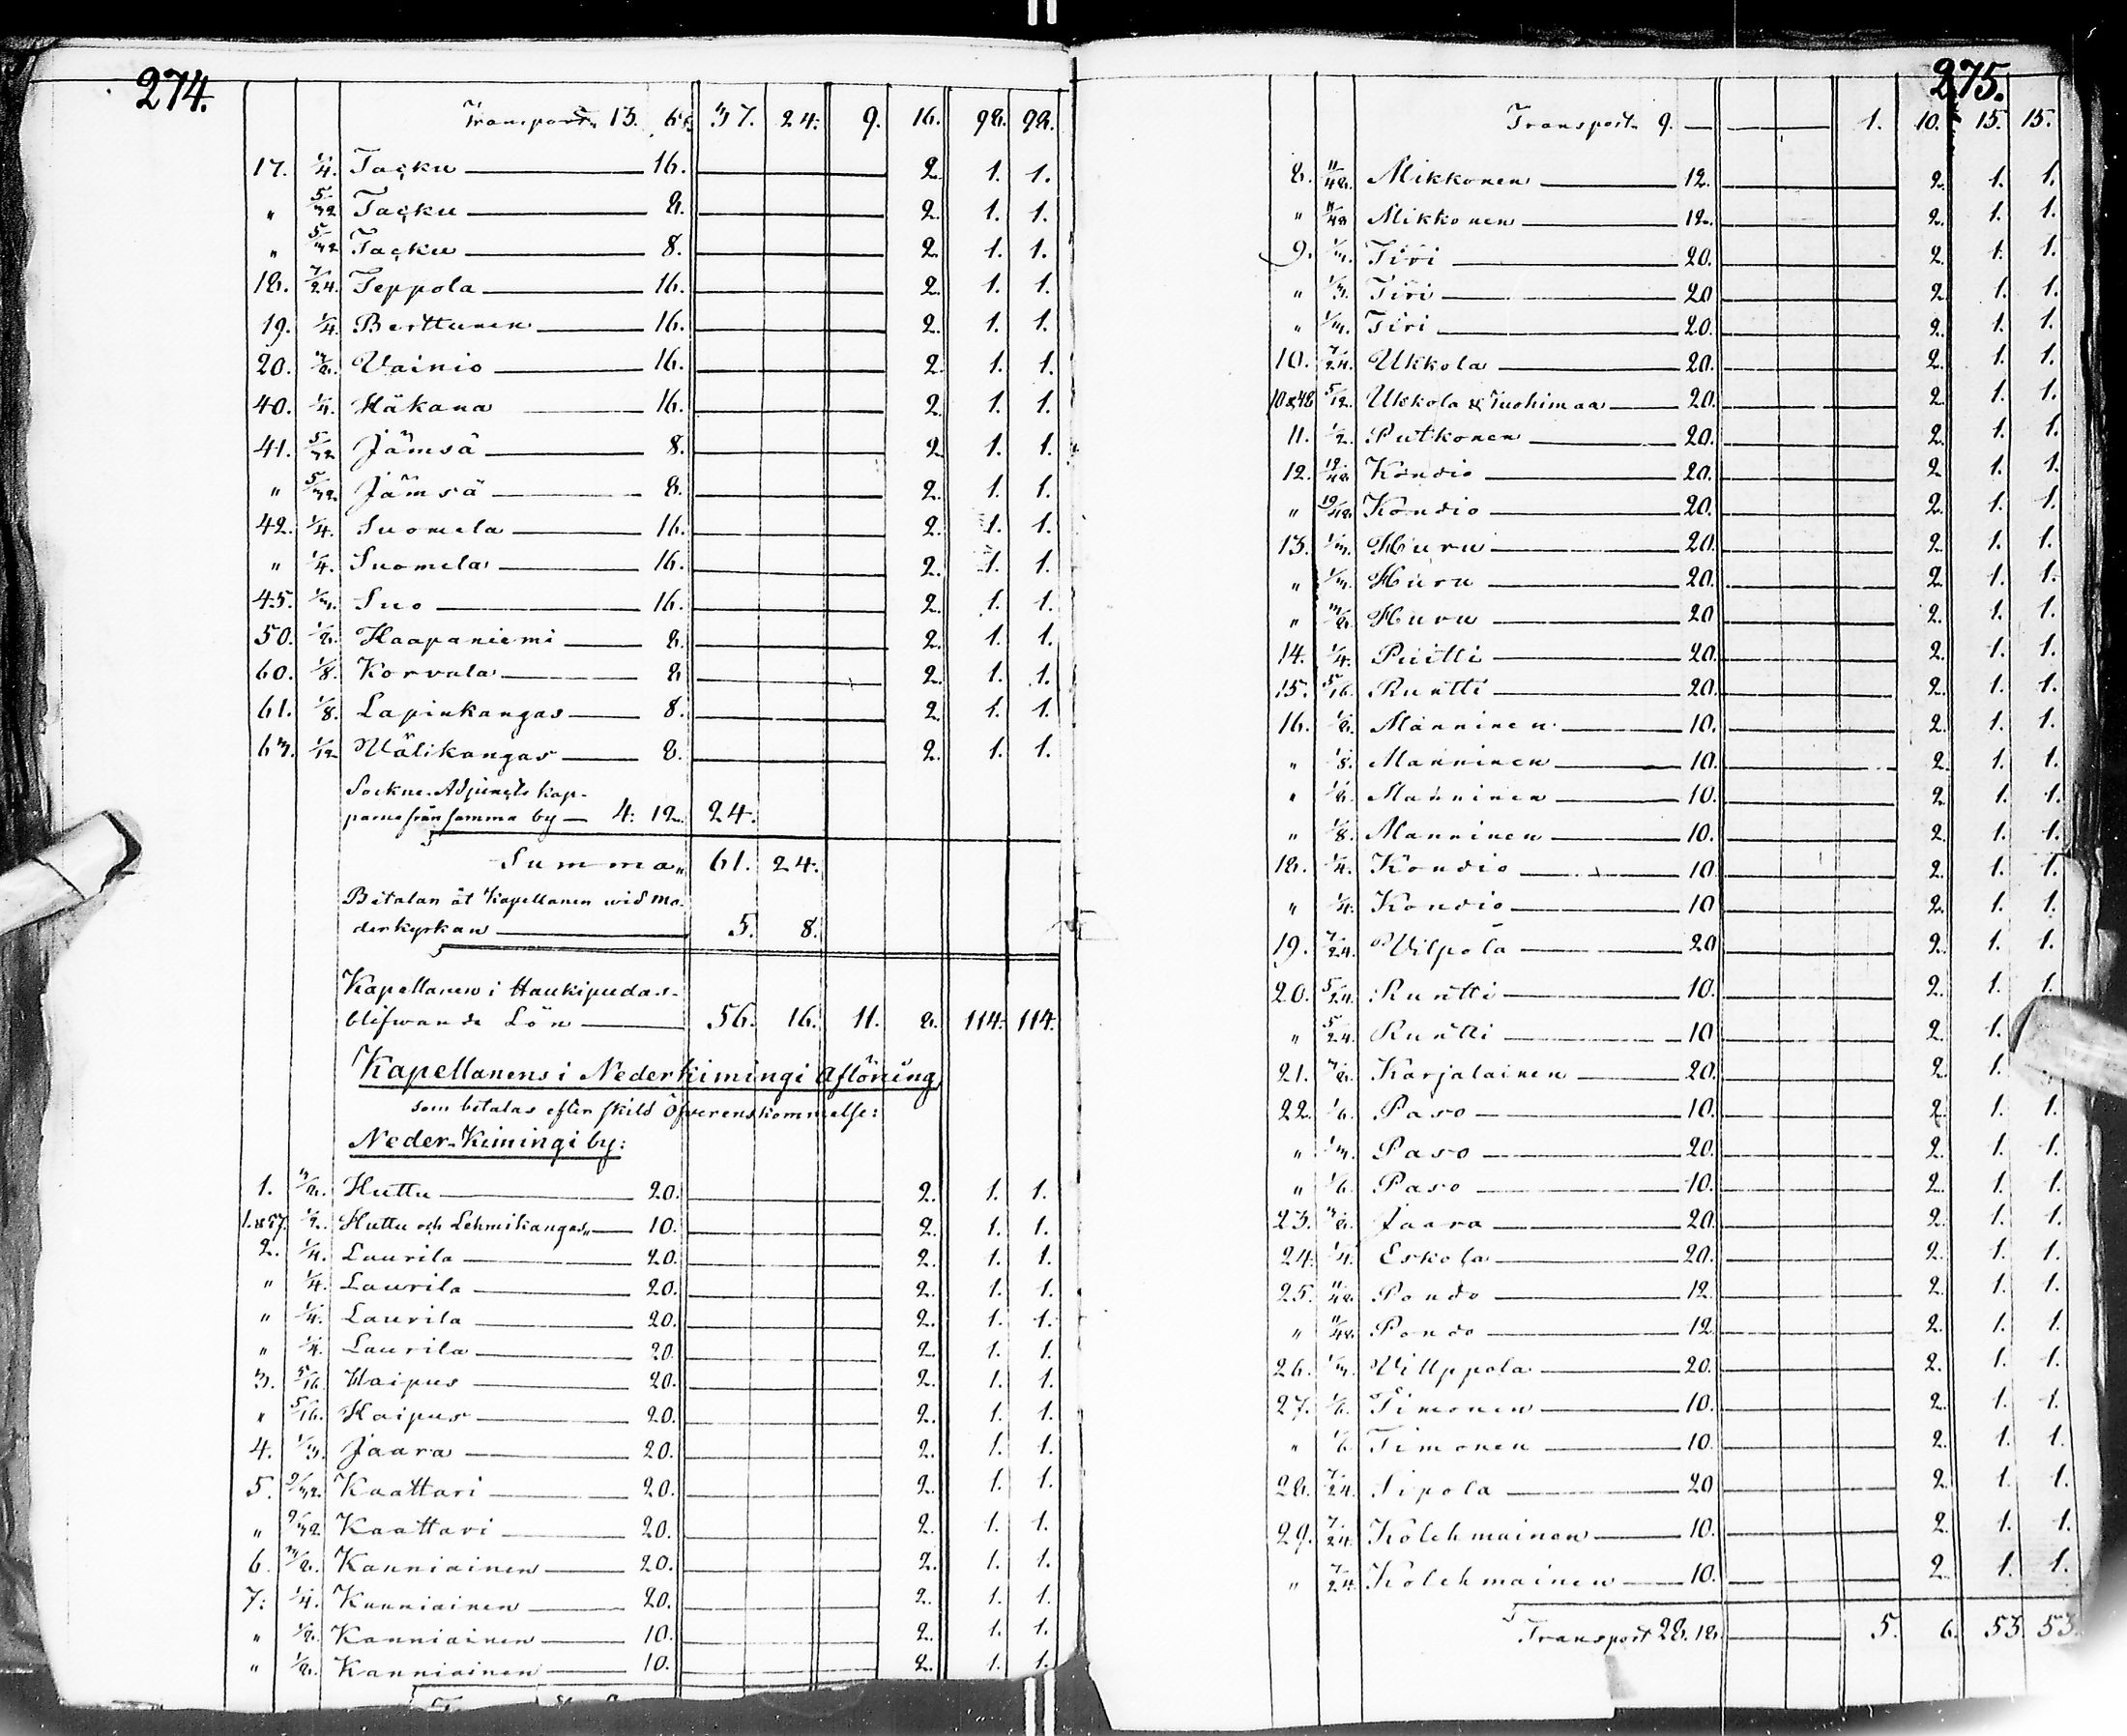 274.
Transport 13. 6. 37. 24. 9. 16. 98. 98.
17. 1/4. Tacku 16. 2. 1. 1.
" 5/32 Tacku 8. 2. 1. 1.
" 5/32 Tacku 8. 2. 1. 1.
18. 7/24. Teppola 16. 2. 1. 1.
19. 1/4. Berttunen 16. 2. 1. 1.
20. 3/8. Vainio 16. 2. 1. 1.
40. 1/4. Häkana 16. 2. 1. 1.
41. 5/32 Jämsä 8. 2. 1. 1.
" 5/32. Jämsä 8. 2. 1. 1.
42. 1/4. Suomela 16. 2. 1. 1.
" 1/4. Suomela 16. 2. 1. 1.
45. 1/3. Suo 16. 2. 1. 1.
50. 1/8. Haapaniemi 8. 2. 1. 1.
60. 1/8. Korvala 8 2. 1. 1.
61. 1/8. Lapinkangas 8. 2. 1. 1.
63. 1/12 Wälikangas 8. 2. 1. 1.
Sockne-Adjuncts kap-
parna från samma by 4. 12. 24.
Summa 61. 24.
Betalan åt Kapellanen wid mo-
derkyrkan 5. 8.
Kapellanen i Haukipudas
blifwande Lön 56. 16. 11. 8. 114. 114.
Kapellanens i Nederkimingi Aflöning
som betalas efter skild Öfverenskommelse:
Neder-Kimingi by:
1. 3/8. Huttu 20. 2. 1. 1.
1.&57. 1/2. Huttu och Lehmikangas 10. 2. 1. 1.
2. 1/4. Laurila 20. 2. 1. 1.
" 1/4. Laurila 20. 2. 1. 1.
" 1/4. Laurila 20. 2. 1. 1.
" 1/4. Laurila 20. 2. 1. 1.
3. 5/16 Haipus 20. 2. 1. 1.
" 5/16. Haipus 20. 2. 1. 1.
4. 1/3. Jaara 20. 2. 1. 1.
5. 9/32. Kaattari 20. 2. 1. 1.
" 9/32 Kaattari 20. 2. 1. 1.
6. 3/8. Kanniainen 20. 2. 1. 1.
7. 1/4. Kanniainen 20. 2. 1. 1.
" 1/8. Kanniainen 10. 2. 1. 1.
" 1/8. Kanniainen 10. 2. 1. 1.
275.
Transport 9. 1. 10. 15. 15.
8. 11/48. Mikkonen 12. 2. 1. 1.
" 11/48 Mikkonen 12. 2. 1. 1.
9. 1/3. Tiri 20. 2. 1. 1.
" 1/3. Tiri 20 2. 1. 1.
" 1/3. Tiri 20. 2. 1. 1.
10. 7/24. Ukkola 20. 2. 1. 1.
10&48 5/12. Ukkola & Tuohimaa 20. 2. 1. 1.
11. 1/2. Putkonen 20. 2. 1. 1.
12. 19/48 Kondio 20. 2. 1. 1.
" 19/48. Kondio 20. 2. 1. 1.
13. 1/3. Huru 20. 2. 1. 1.
" 1/3. Huru 20. 2. 1. 1.
" 3/8. Huru 20 2. 1. 1.
14. 1/4. Piitti 20. 2. 1. 1.
15. 5/16. Runtti 20. 2. 1. 1.
16. 1/8. Manninen 10. 2. 1. 1.
" 1/8. Manninen 10. 2. 1. 1.
" 1/8. Manninen 10. 2. 1. 1.
" 1/8. Manninen 10. 2. 1. 1.
18. 1/4. Kondio 10. 2. 1. 1.
" 1/4. Kondio 10 2. 1. 1.
19. 7/24. Vilpola 20 2. 1. 1.
20. 5/24. Runtti 10. 2. 1. 1.
" 5/24. Runtti 10 2. 1.
21. 3/8. Karjalainen 20. 2. 1.
22. 1/6. Paso 10. 2. 1. 1.
" 1/3. Paso 20. 2. 1. 1.
" 1/6. Paso 10. 2. 1. 1.
23. 3/8. Jaara 20. 2. 1. 1.
24. 1/4. Eskola 20. 2. 1. 1.
25. 11/48. Pondo 12. 2. 1. 1.
" 11/48. Pondo 12. 2. 1. 1.
26. 1/3. Villppola 20. 2. 1. 1.
27. 1/6. Timonen 10. 2. 1. 1.
" 1/6 Timonen 10. 2. 1. 1.
28. 7/24. Sipola 20 2. 1. 1.
29. 7/24. Kolehmainen 10. 2. 1. 1.
" 7/24. Kolehmainen 10. 2 1. 1.
Transport 28. 18. 5. 6. 53 53.